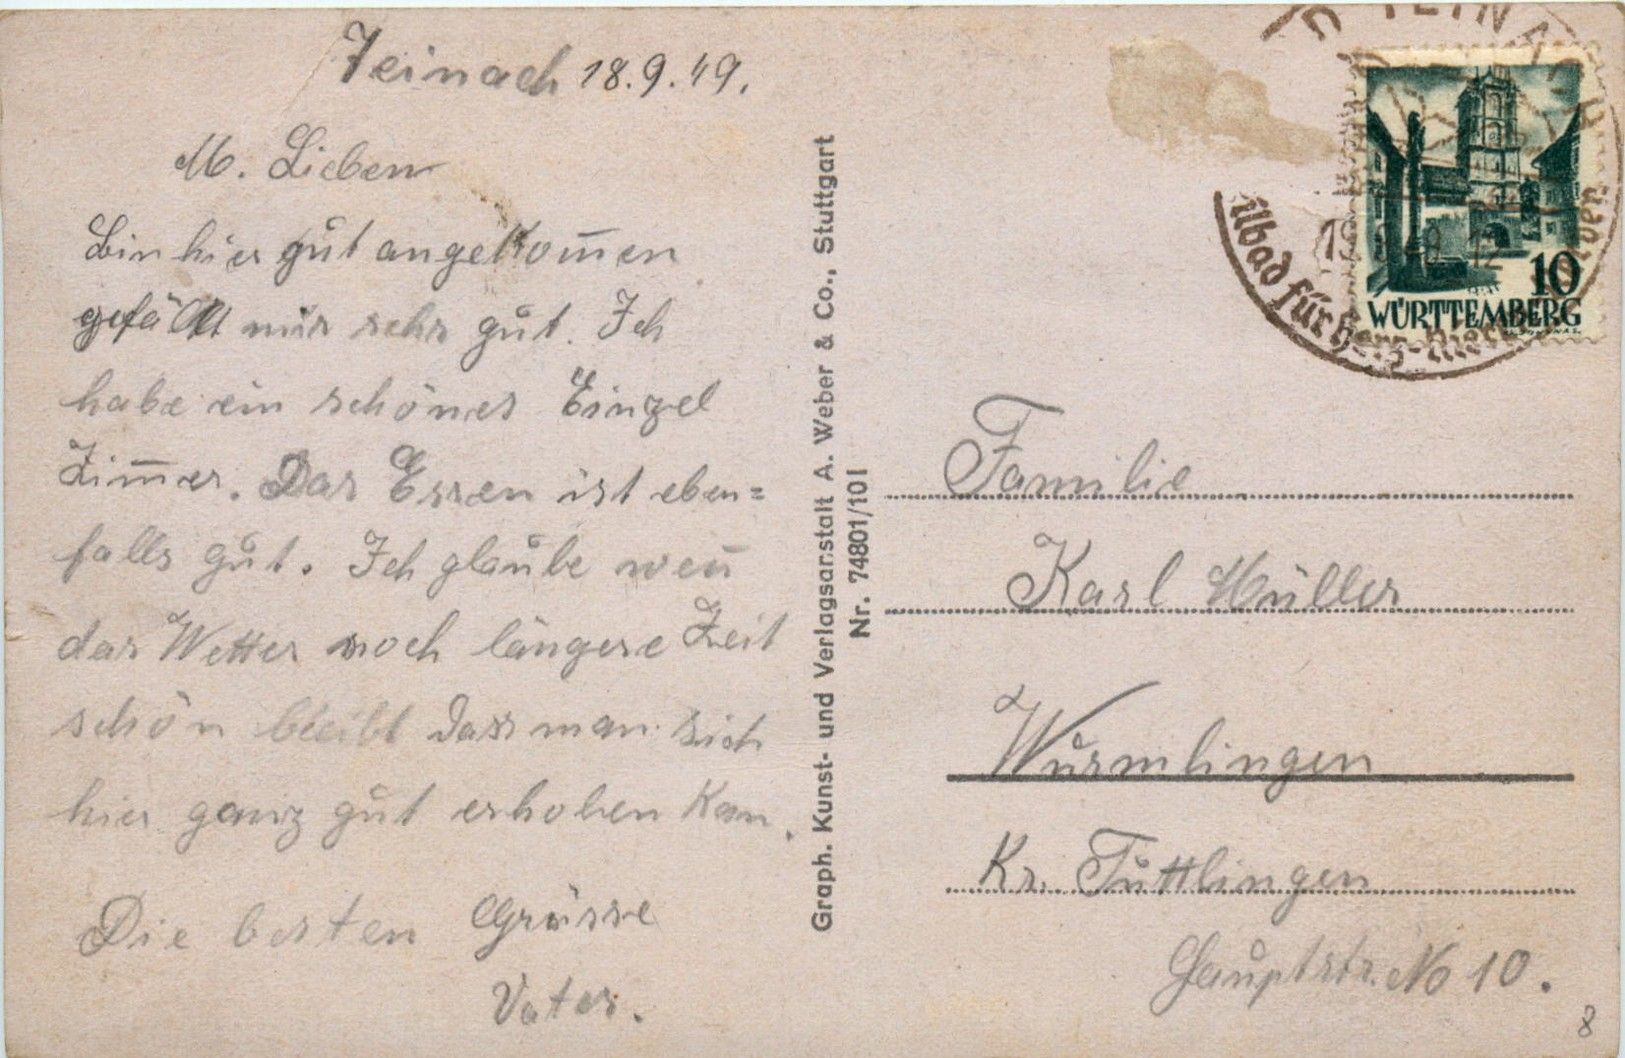 Teinach 18.9.49.
M. Lieben
Bin hier gut angekom̅en
gefällt mir sehr gut. Ich
habe ein schönes Einzel
Zim̅er. Das Essen ist eben=
falls gut. Ich glaube wen̅
das Wetter noch längere Zeit
schön bleibt dass man sich
hier ganz gut erholen kan.
Die besten Grüsse
Vater.
Graph. Kunst- und Verlagsanstalt A. Weber & Co., Stuttgart
Nr. 74801/101
TEINACH
ilbad für Herz-
10
WÜRTTEMBERG
Familie
Karl Müller
Wurmlingen
Kr. Tuttlingen
Hauptstr. No 10.
8